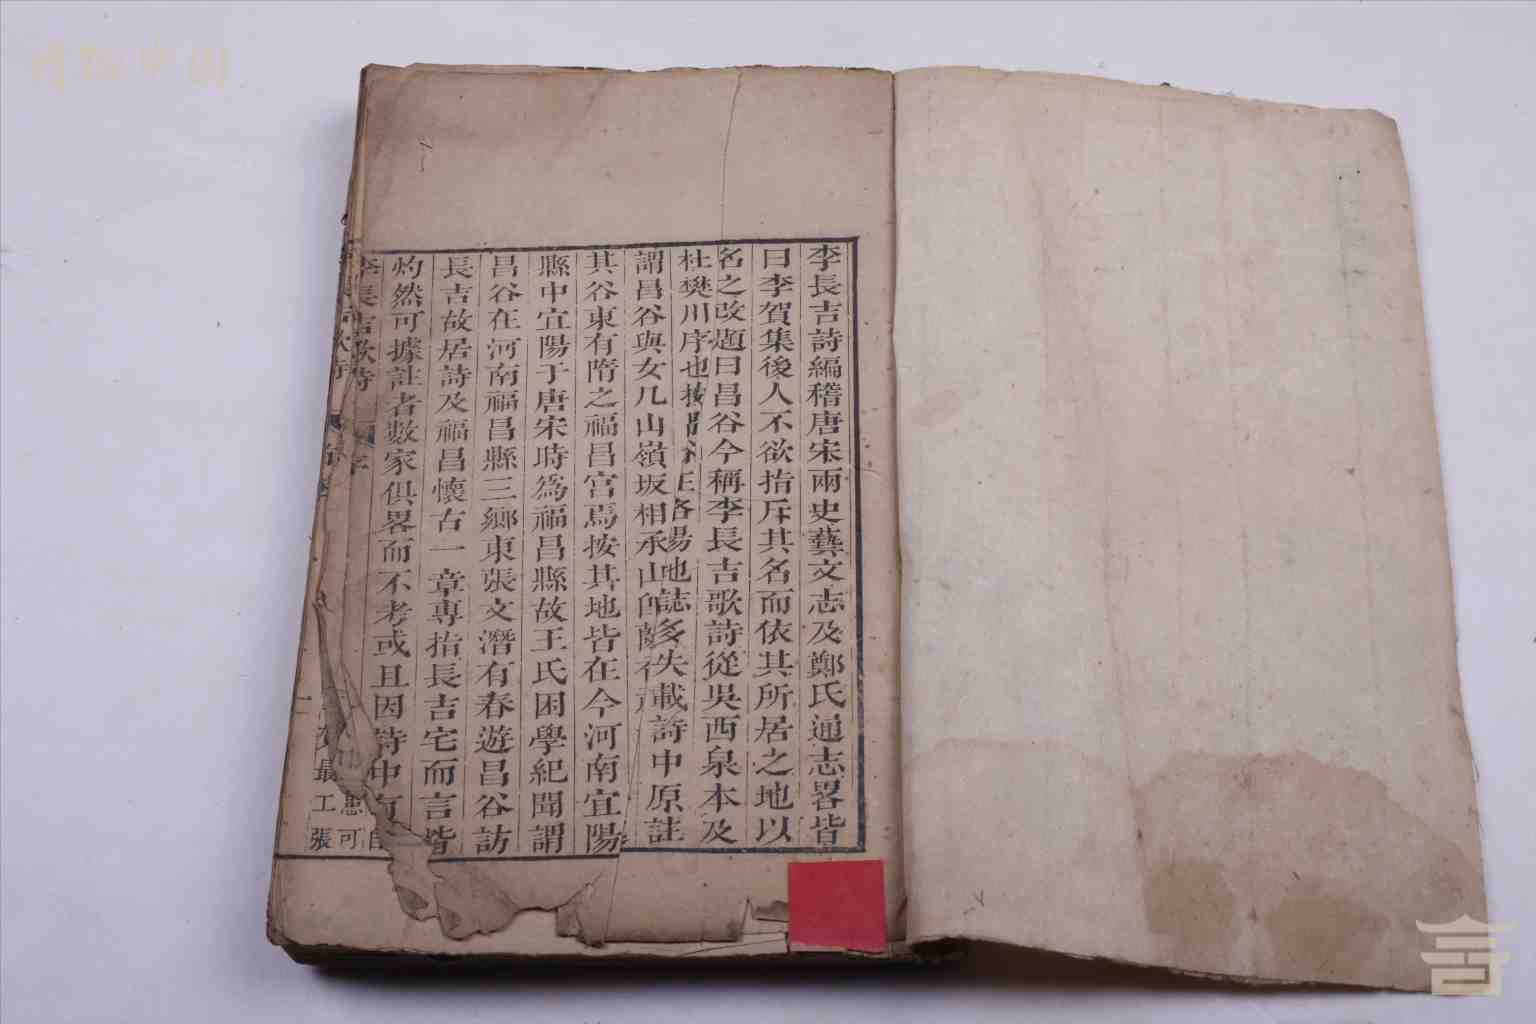 李長吉詩編稽唐宋兩史藝文志及鄭氏通志畧皆
曰李賀集後人不欲指斥其名而依其所居之地以
名之改題曰昌谷今稱李長吉歌詩從吳西泉本及
杜樊川序也按昌谷在洛陽地誌多失載詩中原註
謂昌谷與女几山嶺坂相承山
其谷東有隋之福昌宮焉按其地皆在今河南宜陽
縣中宜陽于唐宋時爲福昌縣故王氏困學紀聞謂
昌谷在河南福昌縣三鄉東張文潛有春遊昌谷訪
長吉故居詩及福昌懷古一章專指長吉宅而言皆
灼然可據註者數家俱畧而不考或且因詩中有
李長吉歌詩
思可
最工張